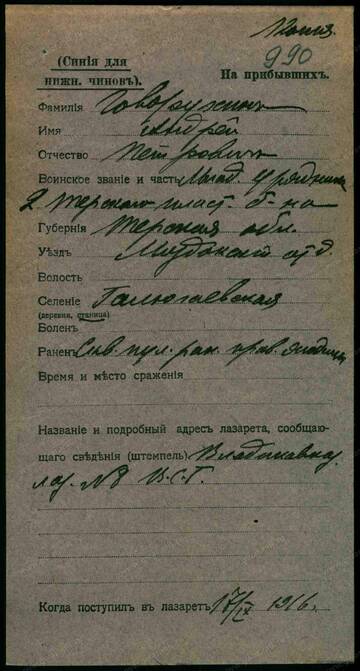 Копия.
990
(Синія для
нижн. чиновъ).
На прибывшихъ.
Фамилія Говорухинъ
Имя Андрей
Отчество Петровичъ
Воинское званіе и часть Млад. урядник
2 Терскаго пласт. б-на
Губернія Терская обл.
Уѣздъ Моздокскій отд.
Волость
Селеніе Галюгаевская
(деревня, станица)
Боленъ
Раненъ пул. ран. прав.
Время и мѣсто сраженія
Названіе и подробный адресъ лазарета, сообщаю-
щаго свѣдѣнія (штемпель) Владикавказ.
лаз. №8 В.С.Г.
Когда поступилъ въ лазаретъ 17/IX 1916 г.